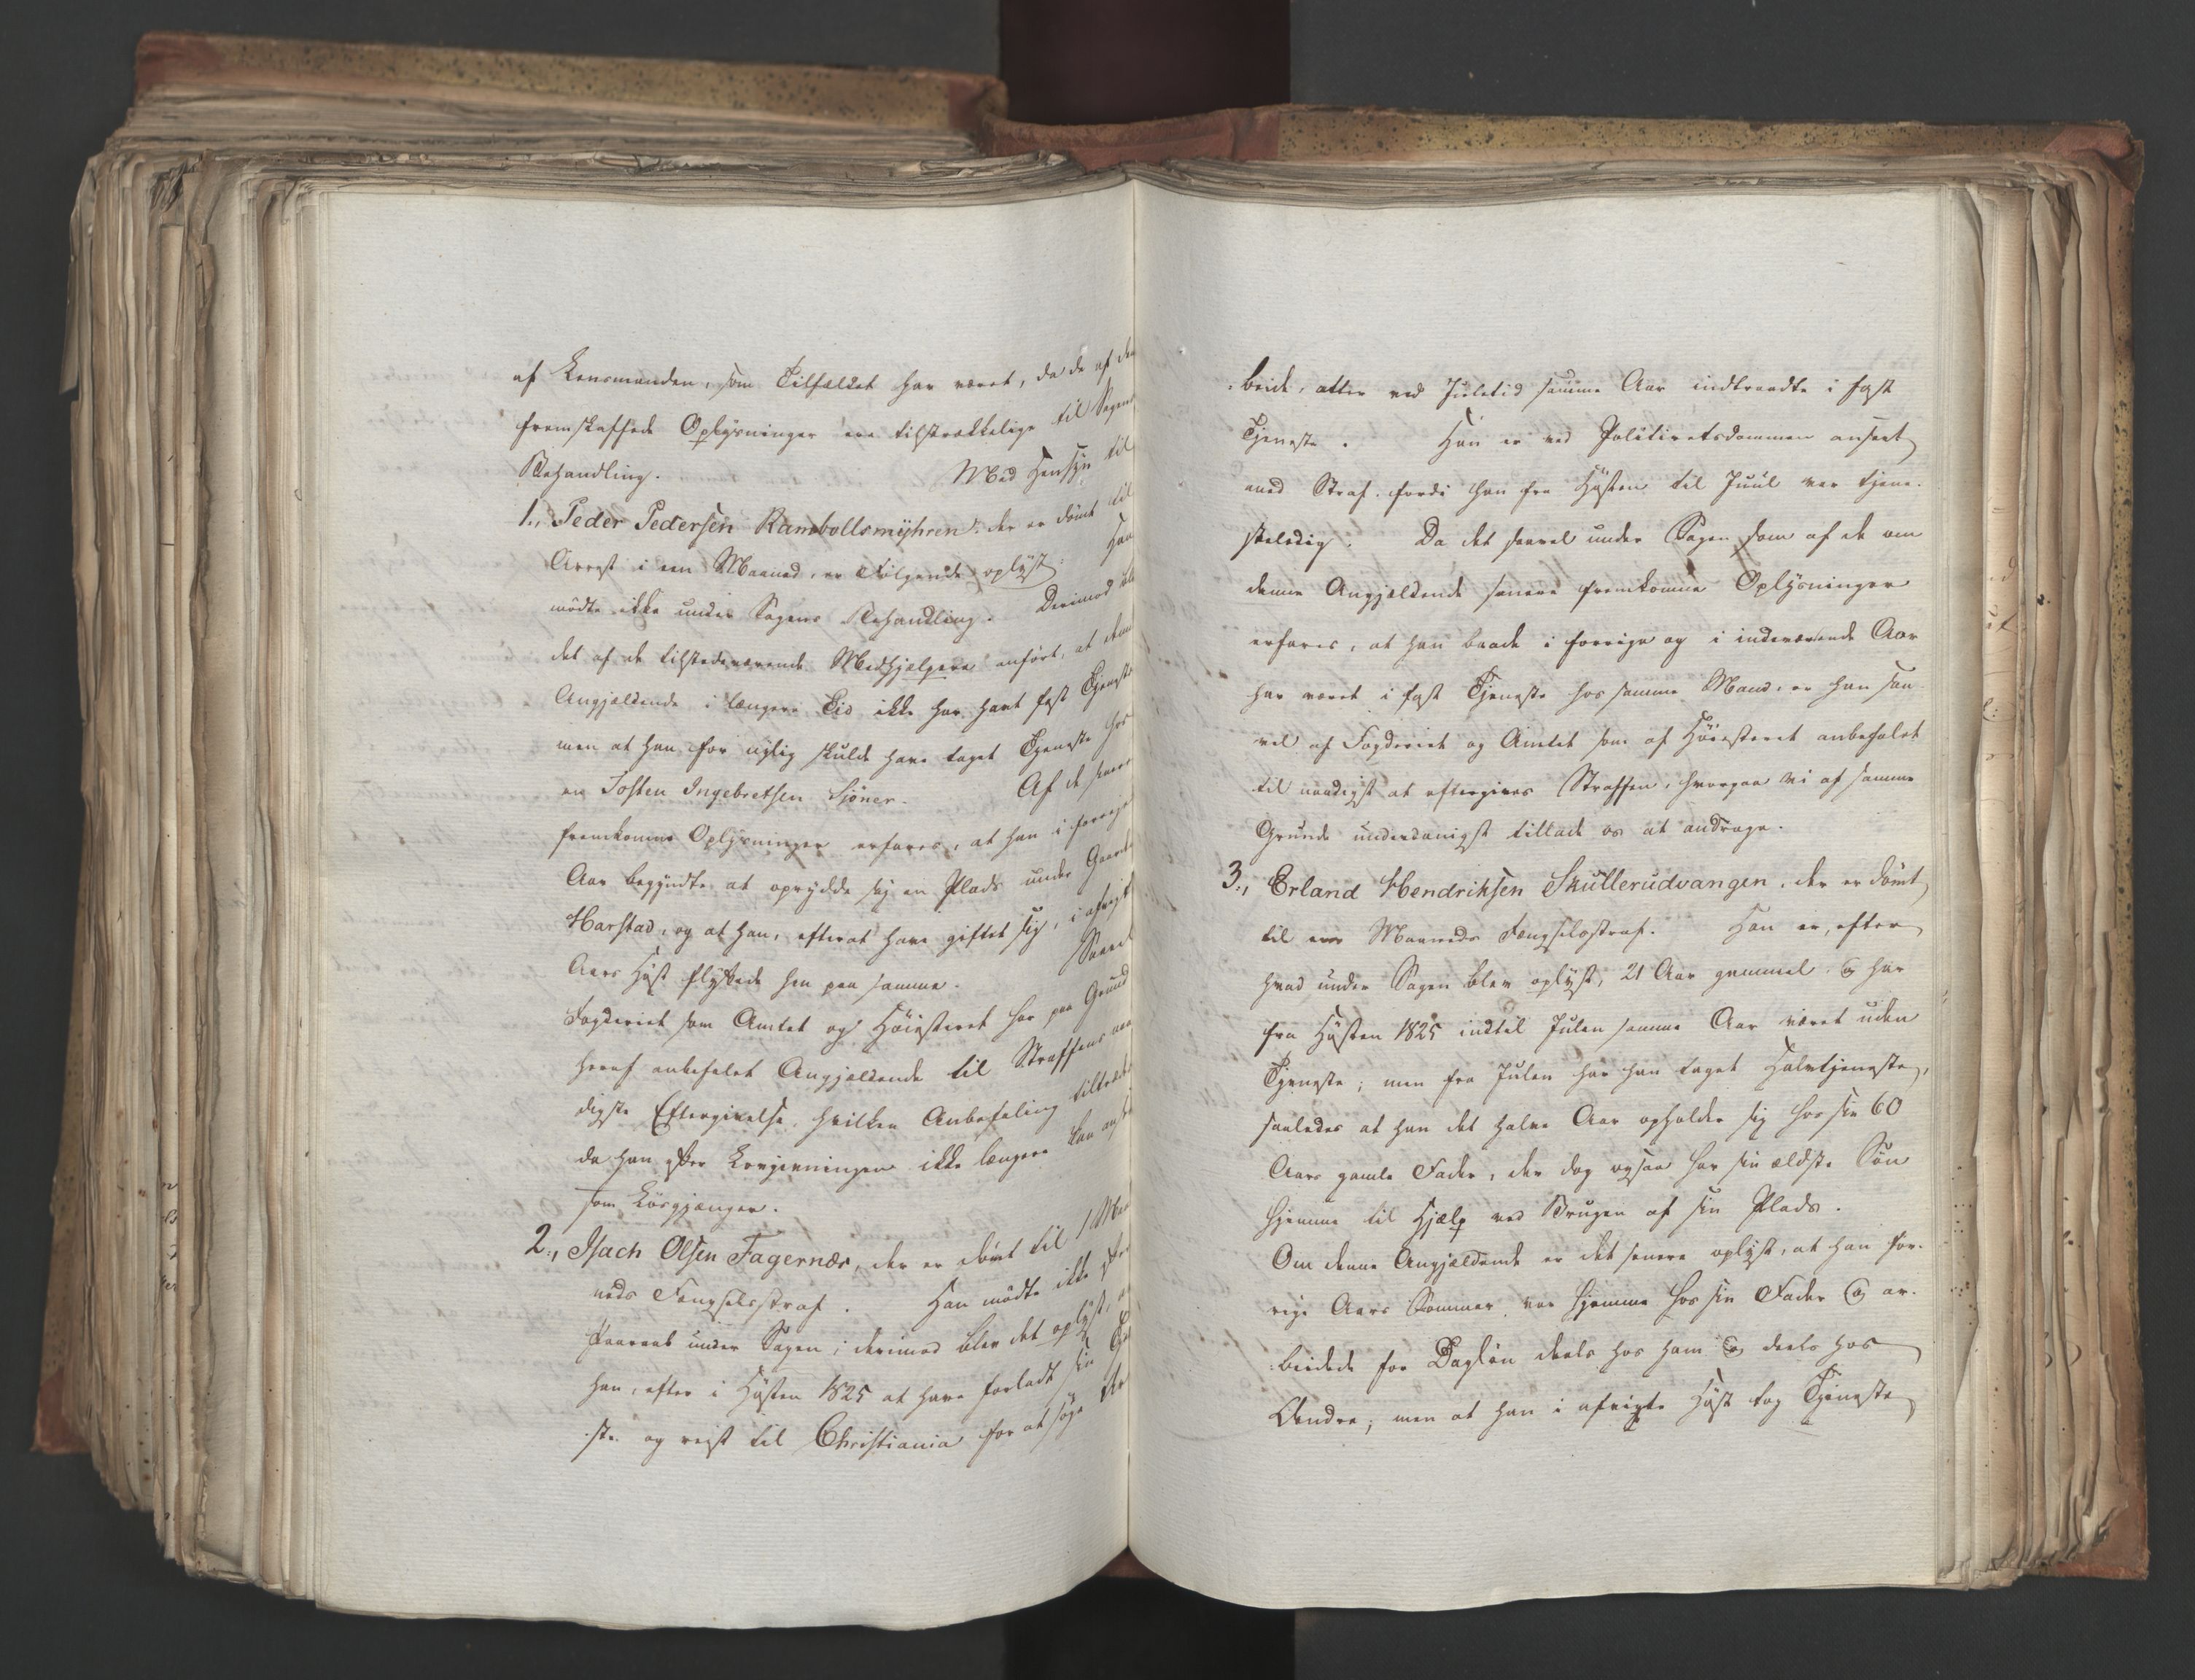 af Lensmanden, som Tilfældet har været, da de af den
fremskaffede Oplysninger ere tilstrækkelige til Sagens
Behandling. Med Hensyn til
1., Peder Pedersen Rambollsmyhren: der er dömt til
Arrest i een Maaned, er Følgende oplyst: Han
mödte ikke under Sagens Behandling. Derimod blev
det af de tilstedeværende Medhjælpere anfört, at denne
Angjældende i længere Tid ikke har havt fast Tjeneste
men at han for nylig skulde have taget Tjeneste hos
en Tosten Ingebretsen Sjöner. Af de senere
fremkomne Oplysninger erfares, at han i forrige
Aar begyndte at oprydde sig en Plads under Gaarden
Harstad, og at han, efterat have giftet sig, i afvigte
Aars Høst flyttede hen paa samme. Saavel
Fogderiet som Amtet og Höiesteret har paa Grund
heraf anbefalet Angjældende til Straffens naa
digste Eftergivelse, hvilken Anbefaling tiltrædes
da han efter Lovgivningen ikke længere kan ansees
som Lösgjænger.
2., Isach Olsen Fagernæs, der er dömt til 1 Maa
neds Fængselsstraf. Han mödte ikke efter
Paaraab under Sagen; derimod blev det oplyst, at
han, efter i Høsten 1825 at have forladt sin Tjene
ste og reist til Christiania for at söge Ar
beide, atter ved Juletid samme Aar indtraadte i fast
Tjeneste. Han er ved Politiretsdommen anseet
med Straf fordi han fra Høsten til Juul var tjene-
stelødig. Da det saavel under Sagen som af de om
denne Angjældende senere fremkomne Oplysninger
erfares, at han baade i forrige og i indeværende Aar
har været i fast Tjeneste hos samme Mand, er han saa
vel af Fogderiet og Amtet som af Höiesteret anbefalet
til naadigst at eftergives Straffen, hvorpaa vi af samme
Grunde underdanigst tillade os at andrage.
3., Erland Hendriksen Skullerudvangen, der er dömt
til een Maaneds Fængselsstraf. Han er, efter
hvad under Sagen blev oplyst, 21 Aar gammel og har
fra Høsten 1825 indtil Julen samme Aar været uden
Tjeneste; men fra Julen har han taget Halvtjeneste,
saaledes at han det halve Aar opholder sig hos sin 60
Aars gamle Fader, der dog ogsaa har sin ældste Sön
hjemme til Hjælp ved Brugen af sin Plads.
Om denne Angjældende er det senere oplyst, at han for-
rige Aars Sommer var hjemme hos sin Fader og ar-
beidede for Daglön deels hos ham og deels hos
Andre; men at han i afvigte Høst tog Tjeneste